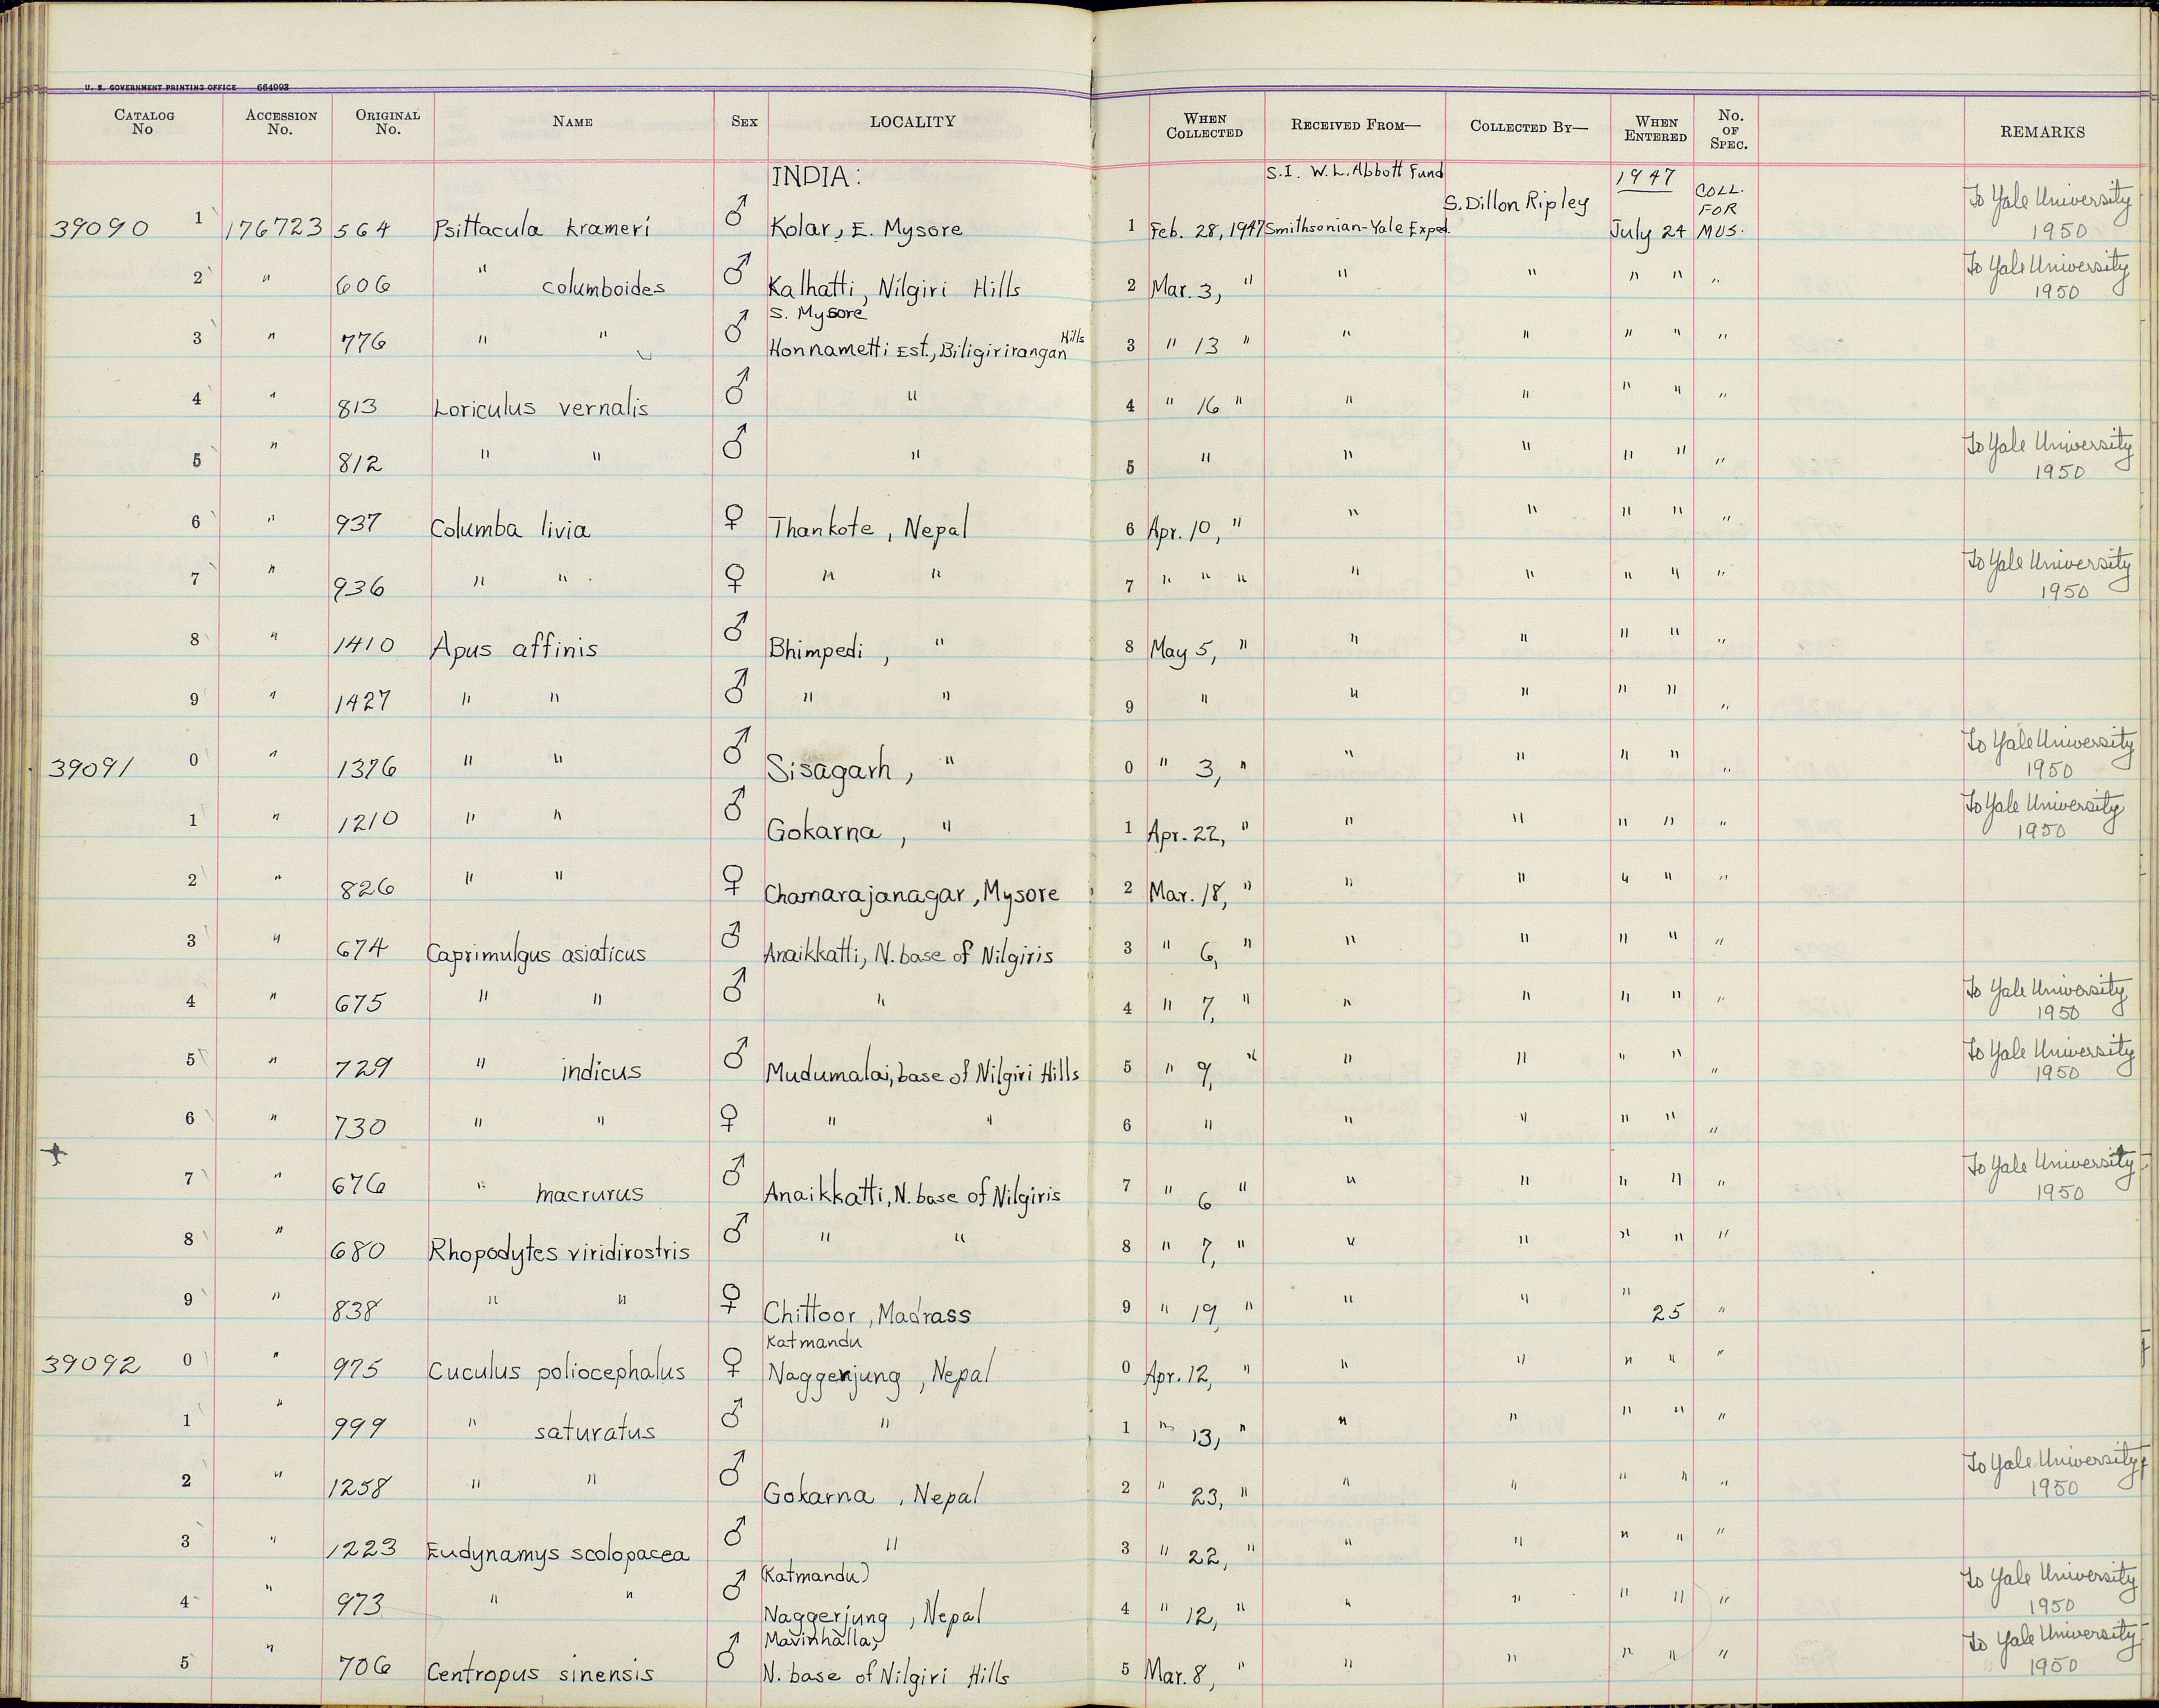 U. S. GOVERNMENT PRINTING OFFICE 664993
CATALOG No ACCESSION No. ORIGINAL No. NAME SEX LOCALITY WHEN COLLECTED RECEIVED FROM— COLLECTED BY— WHEN ENTERED No. OF SPEC. REMARKS
INDIA: S.I. W.L. Abbott Fund 1947 COLL. FOR MUS.
39090 1 176723 564 Psittacula krameri ♂ Kolar, E. Mysore 1 Feb. 28, 1947 Smithsonian-Yale Exped. S. Dillon Ripley July 24 To Yale University 1950
2 " 606 " columboides ♂ Kalhatti, Nilgiri Hills 2 Mar. 3, " " " " " " To Yale University 1950
S. Mysore
3 " 776 " " ♂ Honnametti Est., Biligirirangan Hills 3 " 13 " " " " " "
4 " 813 Loriculus vernalis ♂ " 4 " 16 " " " " " "
5 " 812 " " ♂ " 5 " " " " " " To Yale University 1950
6 " 937 Columba livia ♀ Thankote, Nepal 6 Apr. 10, " " " " " "
7 " 936 " " ♀ " " 7 " " " " " " " " To Yale University 1950
8 " 1410 Apus affinis ♂ Bhimpedi, " 8 May 5, " " " " " "
9 " 1427 " " ♂ " " 9 " " " " " "
39091 0 " 1376 " " ♂ Sisagarh, " 0 " 3, " " " " " " To Yale University 1950
1 " 1210 " " ♂ Gokarna, " 1 Apr. 22, " " " " " " To Yale University 1950
2 " 826 " " ♀ Chamarajanagar, Mysore 2 Mar. 18, " " " " " "
3 " 674 Caprimulgus asiaticus ♂ Anaikkatti, N. base of Nilgiris 3 " 6, " " " " " "
4 " 675 " " ♂ " 4 " 7, " " " " " " To Yale University 1950
5 " 729 " indicus ♂ Mudumalai, base of Nilgiri Hills 5 " 9, " " " " " " To Yale University 1950
6 " 730 " " ♀ " " 6 " " " " " "
7 " 676 " macrurus ♂ Anaikkatti, N. base of Nilgiris 7 " 6 " " " " " " To Yale University 1950
8 " 680 Rhopodytes viridirostris ♂ " " 8 " 7, " " " " " "
9 " 838 " " ♀ Chittoor, Madrass 9 " 19, " " " " 25 "
Katmandu
39092 0 " 975 Cuculus poliocephalus ♀ Naggerjung, Nepal 0 Apr. 12, " " " " " "
1 " 999 " saturatus ♂ " 1 " 13, " " " " " "
2 " 1258 " " ♂ Gokarna, Nepal 2 " 23, " " " " " " To Yale University 1950
3 " 1223 Eudynamys scolopacea ♂ " 3 " 22, " " " " " "
(Katmandu)
4 " 973 " " ♂ Naggerjung, Nepal 4 " 12, " " " " " " To Yale University 1950
Mavinhalla,
5 " 706 Centropus sinensis ♂ N. base of Nilgiri Hills 5 Mar. 8, " " " " " " To Yale University 1950